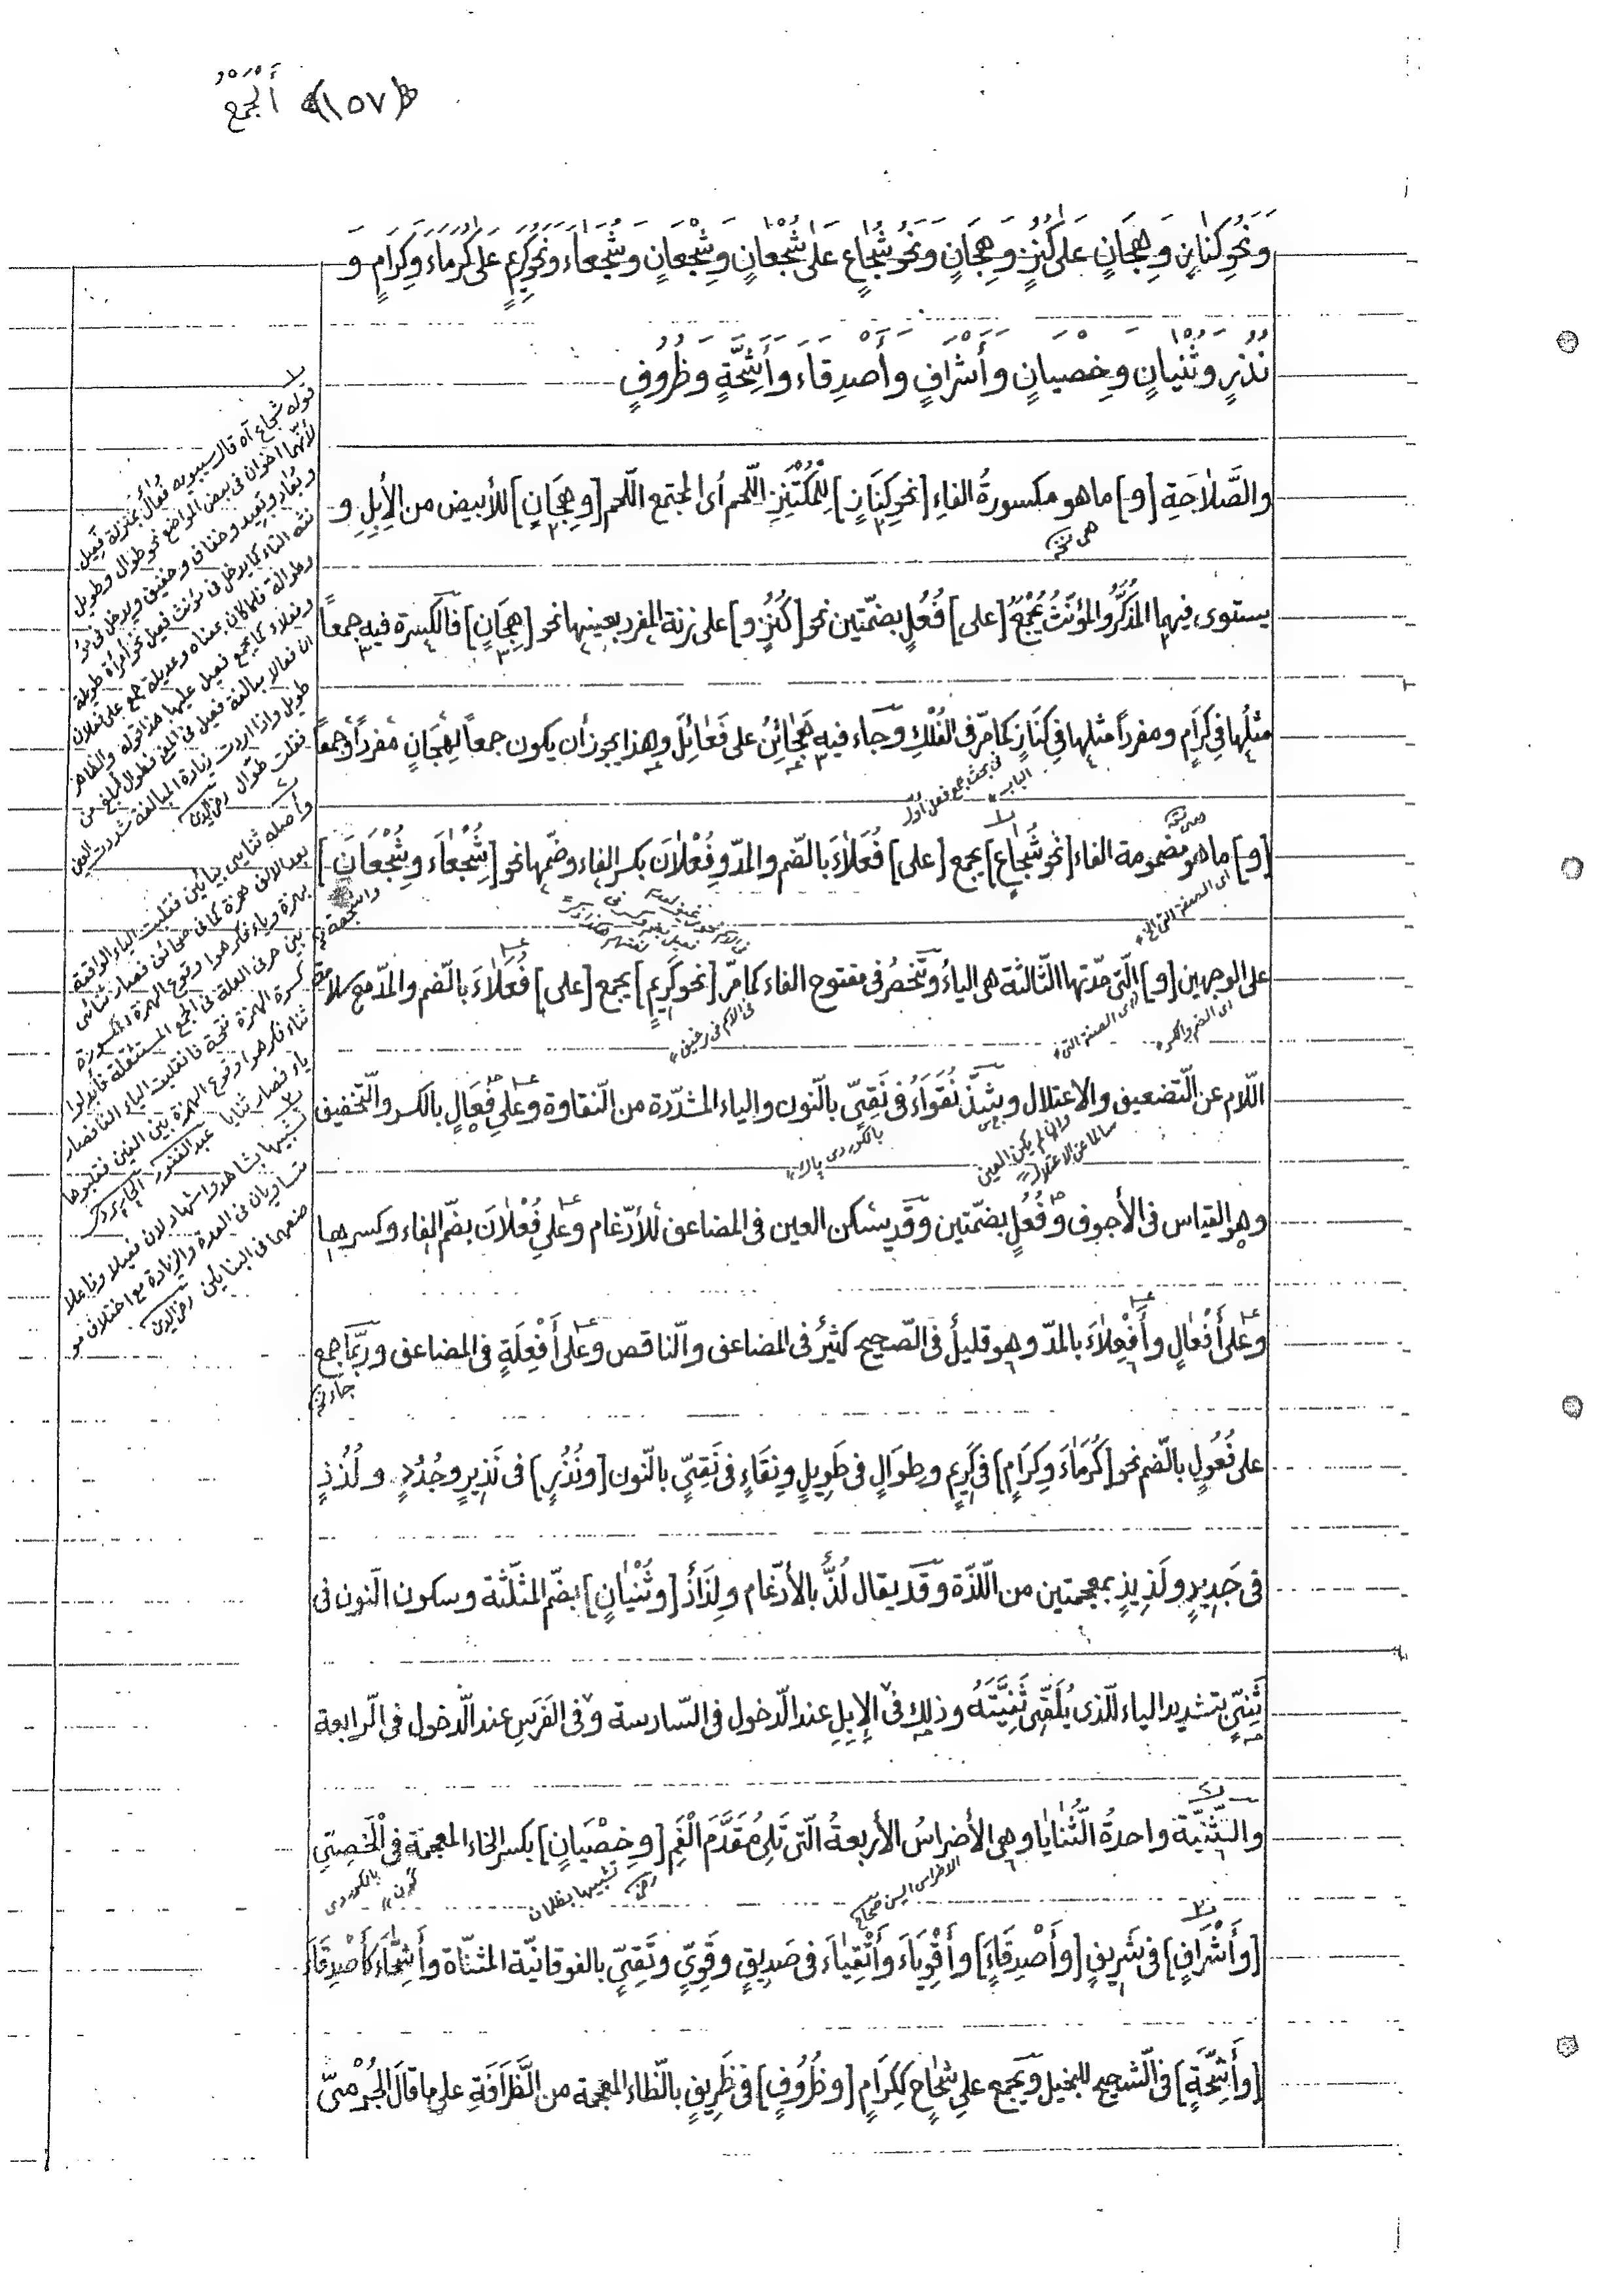 ﴿١٥٧﴾ أَلْجَمْعُ
وَنَحْوِ كِنَازٍ وَهِجَانٍ عَلَىٰ كُنُزٍ وَهِجَانٍ وَنَحْوُ شُجَاعٍ عَلَىٰ شُجْعَانٍ وَشِجْعَانٍ وَشُجَعَاءَ وَنَحْوُ كَرِيمٍ عَلَىٰ كُرَمَاءَ وَكِرَامٍ وَ
نُذُرٍ وَثُنْيَانٍ وَخِصْيَانٍ وَأَشْرَافٍ وَأَصْدِقَاءَ وَأَشِحَّةٍ وَظُرُوفٍ
والصَّلاٰحَةِ [و] ما هو مكسورةُ الفاءِ [نحوِ كِنَازٍ] لِلْمُكْتَنِزِ اللّحم أى المجتمع اللّحم [وَهِجَانٍ] للأبيض من الأِبِلِ و
هى نخ
يستوى فيهما المذكَّرُ والمؤنّثُ يُجْمَعُ [على] فُعُلٍ بضمّتين نحو [كُنُزٍ و] على زنة المفرد بعينها نحو [هِجَانٍ] فالكسرة فيه جمعاً
مثلُها فى كِرَامٍ ومفرداً مثلها فى كِنَازٍ كما مرّ فى الفُلْكِ وجاء فيه هَجٰائِنُ على فَعٰائِلَ وهذا يجوز أن يكون جمعاً لِهِجَانٍ مفرداً وجمعاً
فى بحث جمع فعل اوّل
الباب
[و] ما هو مضمومة الفاء [نحو شُجَاعٍ] يجمع [على] فُعَلاٰءَ بالضّم والمدّ وفِعْلاٰن بكسر الفاء وضمّها نحو [شُجَعٰاءَ وشُِجْعَانَ]
اى الصفة التى الخ
على الوجهين [و] الّتى مدّتها الثّالثة هى الياءُ وتنحصُر فى مفتوح الفاء كما مرّ [نحو كَرِيمٍ] يجمع [على] فُعَلاٰءَ بالضّم والمدّ مع سلامة
اى الضم والكسر
اى الصفة التى
اللّام عن التّضعيف والاعتلال وشذّ نُقَوَاءُ فى نَقِىّ بالنّون والياء المشدّدة من النّقاوة وعلى فِعَالٍ بالكسر والتّخفيف
وان لم يكن العين
سالما عن الاعتلال
بالكوردى پاك
وهو القياس فى الأجوف وفُعُلٍ بضمّتين وقد يسكن العين فى المضاعف للأدّغام وعلى فُعْلاٰنَ بضمّ الفاء وكسرها
وعلى أَفْعٰالٍ وأَفْعِلاٰءَ بالمدّ وهو قليلٌ فى الصّحيح كثيرٌ فى المضاعف والنّاقص وعلى أَفْعِلَةٍ فى المضاعف وربّما جمع
جاء نخ
على فُعُولٍ بالضّم نحو [كُرَمٰاءَ وكِرَامٍ] فى كَرِيمٍ وطِوَالٍ فى طَوِيلٍ ونِقَاءٍ فى نَقِىٍّ بالنّون [ونُذُرٍ] فى نَذِيرٍ وجُدُدٍ ولُذُذٍ
فى جَدِيدٍ ولَذِيذٍ بمعجمتين من اللّذّة وقد يقال لُذٌّ بالأدّغام ولِذَاذٌ [وثُنْيٰانٍ] بضمّ المثلّثة وسكون النّون فى
ثَنِىٍّ بتشديد الياء للّذى يُلْقِى ثَنِيَّتَهُ وذلك فى الإِبِلِ عند الدّخول فى السّادسة وفى الفَرَسِ عند الدّخول فى الرّابعة
والثَّنِيَّة واحدةُ الثَّنٰايٰا وهى الأضراسُ الأربعةُ الّتى تَلِى مُقَدَّمَ الْفَمِ [وخِصْيَانٍ] بكسر الخاء المعجمة فى الْخَصِىِّ
تشبيها بظلمان
رضى
بالكوردى
[وأَشْرَافٍ] فى شَرِيفٍ [وأَصْدِقَاءَ] وأَقْوِيَاءَ وأَتْقِيٰاءَ فى صَدِيقٍ وقَوِىٍّ وتَقِىٍّ بالفوقانيّة المثنّاة وأَشِحّاءَ كأَصْدِقَاءَ
[وأَشِحَّةٍ] فى الشّحيح للبخيل ويجمع على شِحٰاحٍ كَكِرَامٍ [وظُرُوفٍ] فى ظَرِيفٍ بالظّاء المعجمة من الظَّرَافَةِ على ما قالَ الْجُرْمىّ
قوله شجاع آه قال سيبويه فعال بمنزلة فعيل
لأنّهما اخوان فى بعض المواضع نحو طوال وطويل
وبعاد وبعيد وخفاف وخفيف ويدخل فى مؤ
نثه التاء كما يدخل فى مؤنث فعيل نحو امرأة طويلة
وطوالة فلما كان بمعناه وعديله جمع على فعلان
وفعلاء كما يجمع فعيل عليها هذا قوله والظاهر
ان فعالا مبالغة فعيل فى المعنى فطوال ابلغ من
طويل واذا اردت زيادة المبالغة شددت العين
فقلت طوّال رضى الدين
وأصله ثنايى بيائين فقلبت الياء الواقعة
بعد الالف همزة كما فى صحائف فصار ثنائى
بهمزة وياء فكرهوا وقوع الهمزة المكسورة
بين حرفى العلة فى الجمع المستثقلة فأبدلوا
كسرة الهمزة فتحة فانقلبت الياء الفا فصار
ثناءا فكرهوا وقوع الهمزة بين الفين فقلبوها
ياء فصار ثنايا عبد الغفور
تشبيها بشاهد واشهاد لان فعيلا وفاعلا
متساويان فى العدة والزيادة مع اختلاف مو
ضعهما فى البنائين رضى الدين